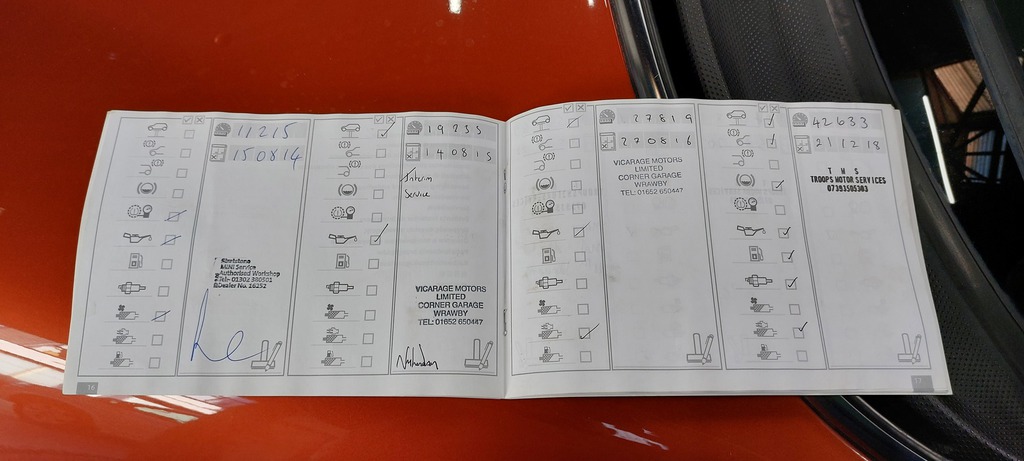 11215
150814
Stratstone
MINI Service
Authorised Workshop
Dealer No. 16251
16
19755
140815
Interim
Service
VICARAGE MOTORS
LIMITED
CORNER GARAGE
WRAWBY
TEL: 01652 650447
27819
270816
VICARAGE MOTORS
LIMITED
CORNER GARAGE
WRAWBY
TEL: 01652 650447
42633
211218
T M S
TROOPS MOTOR SERVICES
07393505303
17